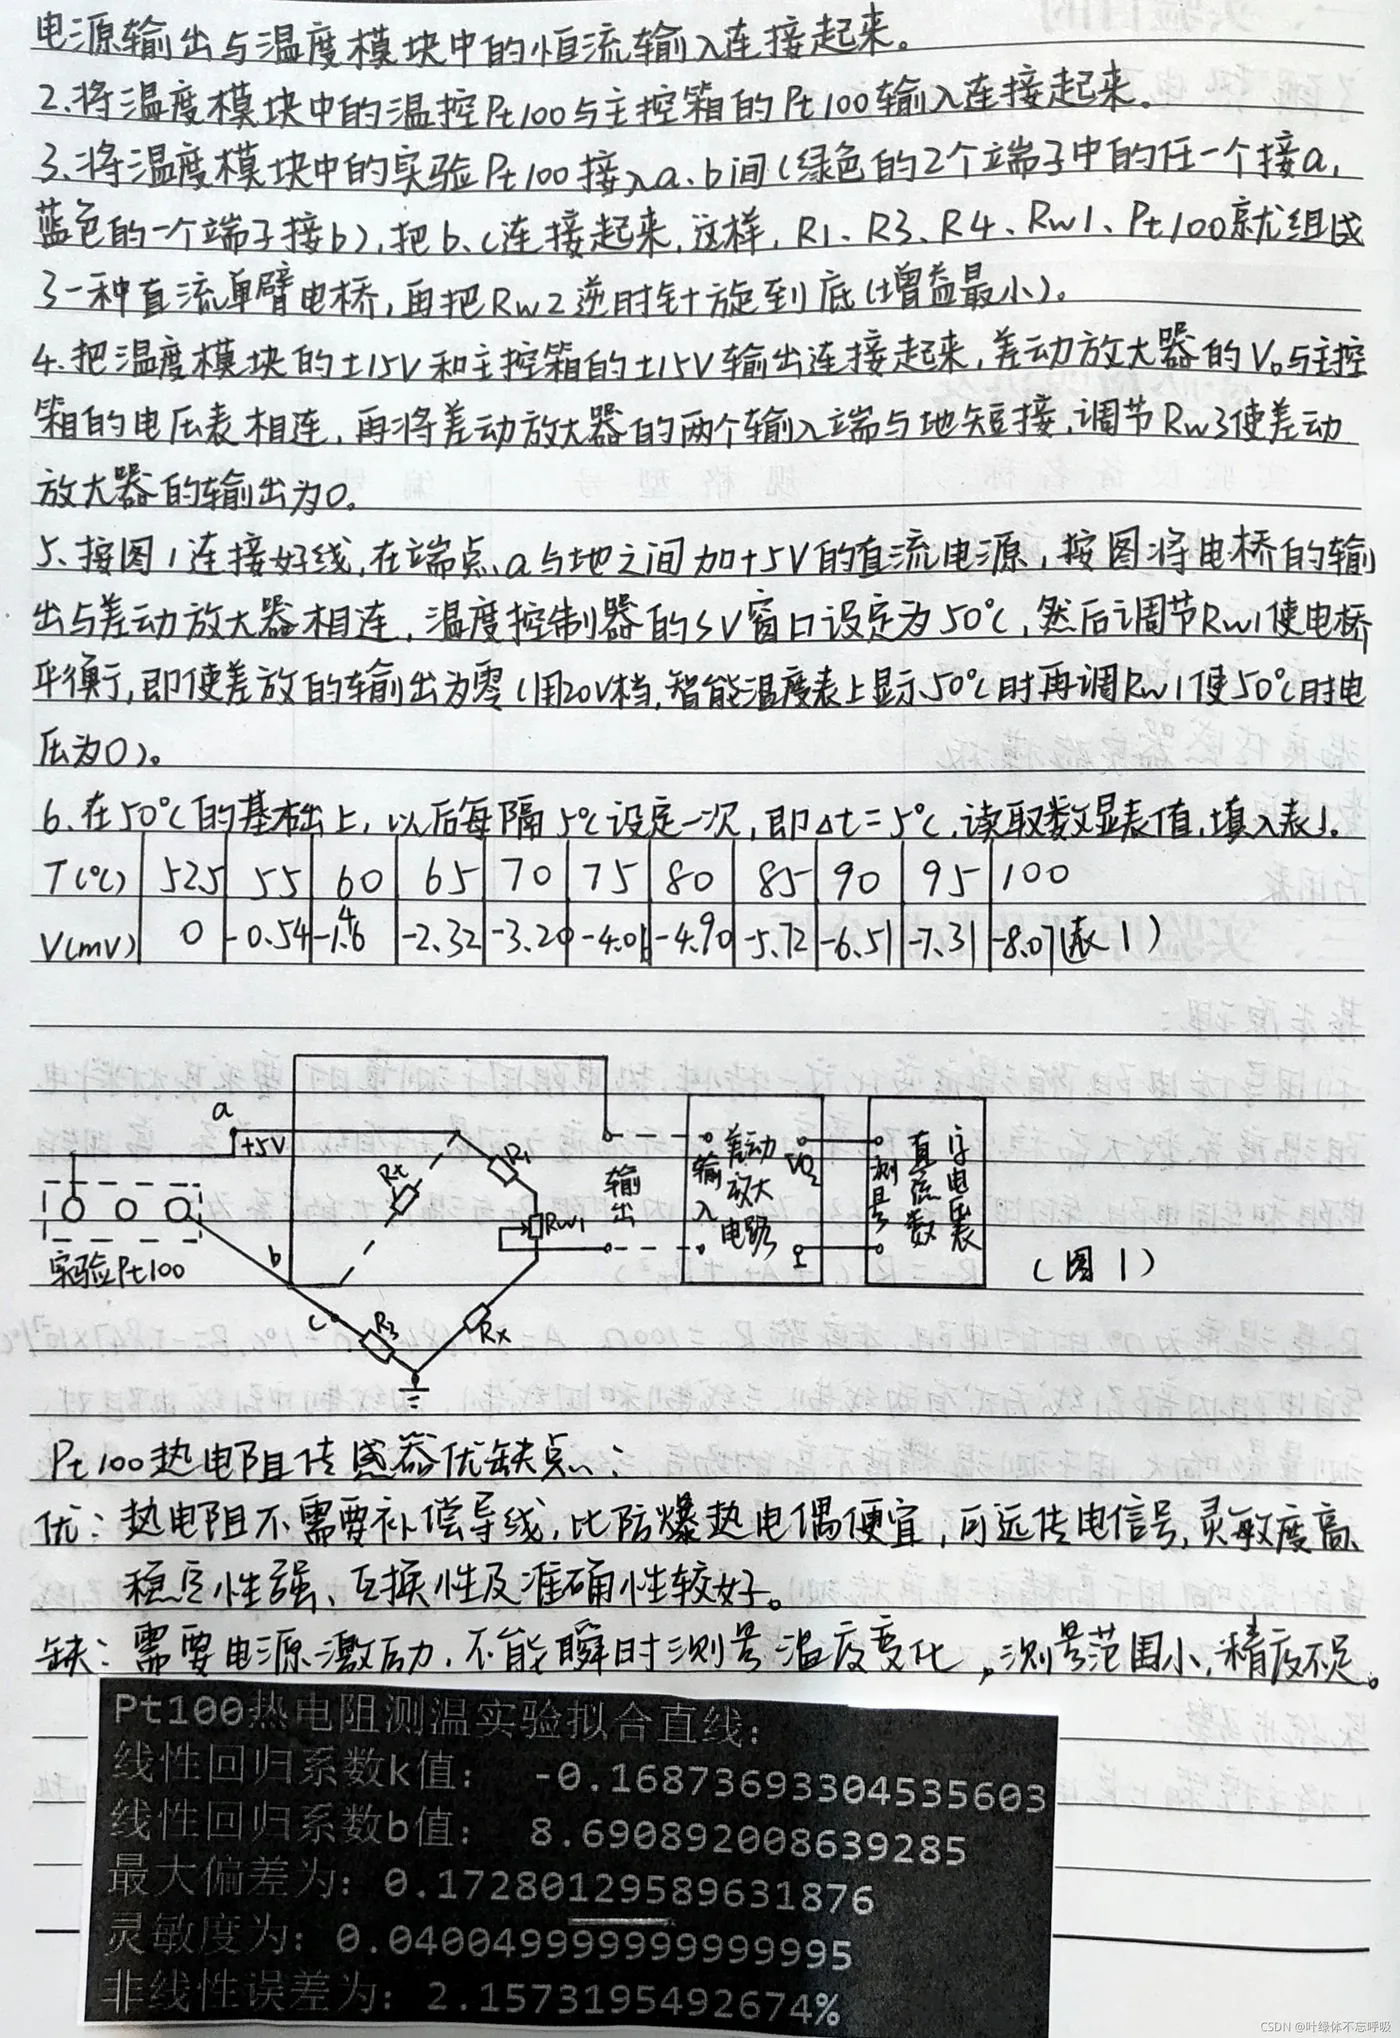 电源输出与温度模块中的恒流输入连接起来。
2.将温度模块中的温控Pt100与主控箱的Pt100输入连接起来.
3.将温度模块中的实验Pt100接入a、b间(绿色的2个端子中的任一个接a,
蓝色的一个端子接b),把b、c连接起来,这样,R1、R3、R4、Rw1、Pt100就组成
了一种直流单臂电桥,再把Rw2逆时针旋到底(增益最小)。
4.把温度模块的±15V和主控箱的±15V输出连接起来,差动放大器的Vo与主控
箱的电压表相连,再将差动放大器的两个输入端与地短接,调节Rw3使差动
放大器的输出为0。
5、按图1连接好线,在端点a与地之间加+5V的直流电源,按图将电桥的输
出与差动放大器相连,温度控制器的SV窗口设定为50℃,然后调节Rw1使电桥
平衡,即使差放的输出为零(用20V档,智能温度表上显示50℃时再调Rw1使50℃时电
压为0)。
6、在50℃的基础上,以后每隔5℃设定一次,即Δt=5℃,读取数显表值,填入表1。
T(℃) 52.5 55 60 65 70 75 80 85 90 95 100
V(mV) 0 -0.54 -2.32 -3.20 -4.90 -5.72 -6.51 -7.31 -8.07 (表1)
a
+5V
Rt
R1
Rw1
b
c
R3
Rx
实验Pt100
输出
输入
差动放大电路
VO2
直流数字电压表
(图1)
Pt100热电阻传感器优缺点:
优:热电阻不需要补偿导线,比防爆热电偶便宜,可远传电信号,灵敏度高、
稳定性强、互换性及准确性较好。
缺:需要电源激励,不能瞬时测量温度变化,测量范围小,精度不足。
Pt100热电阻测温实验拟合直线:
线性回归系数k值: -0.16873693304535603
线性回归系数b值: 8.690892008639285
最大偏差为: 0.17280129589631876
灵敏度为: 0.04004999999999999995
非线性误差为: 2.1573195492674%
CSDN @叶绿体不忘呼吸